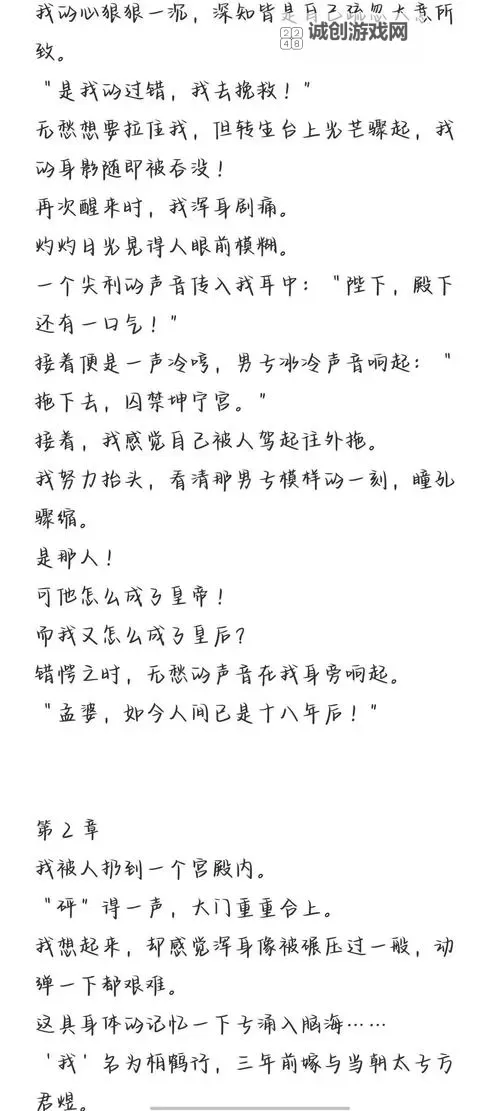 我的心狠狠一沉，深知皆是自己疏忽大意所
诚创游戏网
2248
致。
“是我的过错，我去挽救！”
无愁想要拉住我，但转生台上光芒骤起，我
的身影随即被吞没！
再次醒来时，我浑身剧痛。
灼灼日光晃得人眼前模糊。
一个尖利的声音传入我耳中：“陛下，殿下
还有一口气！”
接着便是一声冷哼，男子冰冷声音响起：“
拖下去，囚禁坤宁宫。”
接着，我感觉自己被人驾起往外拖。
我努力抬头，看清那男子模样的一刻，瞳孔
骤缩。
是那人！
可他怎么成了皇帝！
而我又怎么成了皇后？
错愕之时，无愁的声音在我身旁响起。
“孟婆，如今人间已是十八年后！”
第2章
我被人扔到一个宫殿内。
“砰”得一声，大门重重合上。
我想起来，却感觉浑身像被碾压过一般，动
弹一下都艰难。
这具身体的记忆一下子涌入脑海……
‘我’名为柏鹤行，三年前嫁与当朝太子方
君煜。